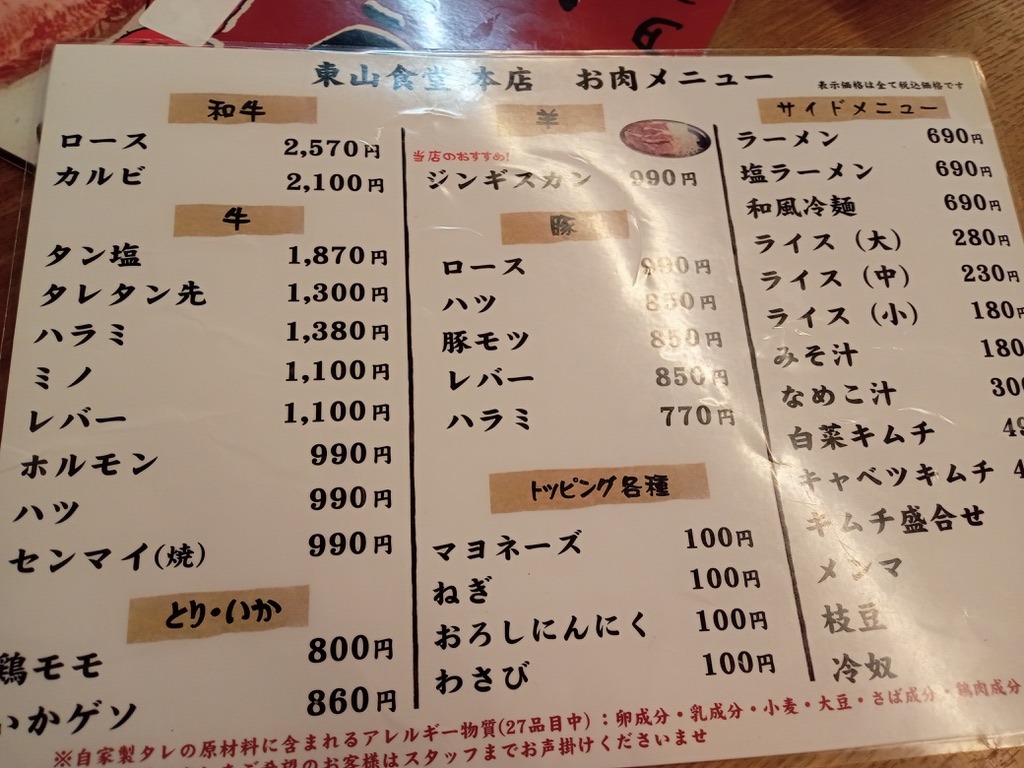 東山食堂 本店 お肉メニュー
表示価格は全て税込価格です
和牛
ロース 2,570円
カルビ 2,100円
牛
タン塩 1,870円
タレタン先 1,300円
ハラミ 1,380円
ミノ 1,100円
レバー 1,100円
ホルモン 990円
ハツ 990円
センマイ(焼) 990円
とり・いか
鶏モモ 800円
いかゲソ 860円
当店のおすすめ!
ジンギスカン 990円
豚
ロース 990円
ハツ 850円
豚モツ 850円
レバー 850円
ハラミ 770円
トッピング各種
マヨネーズ 100円
ねぎ 100円
おろしにんにく 100円
わさび 100円
サイドメニュー
ラーメン 690円
塩ラーメン 690円
和風冷麺 690円
ライス(大) 280円
ライス(中) 230円
ライス(小) 180円
みそ汁 180
なめこ汁 300
白菜キムチ
キャベツキムチ
キムチ盛合せ
メンマ
枝豆
冷奴
※自家製タレの原材料に含まれるアレルギー物質(27品目中):卵成分・乳成分・小麦・大豆・さば成分・鶏肉成分
ご希望のお客様はスタッフまでお声掛けくださいませ